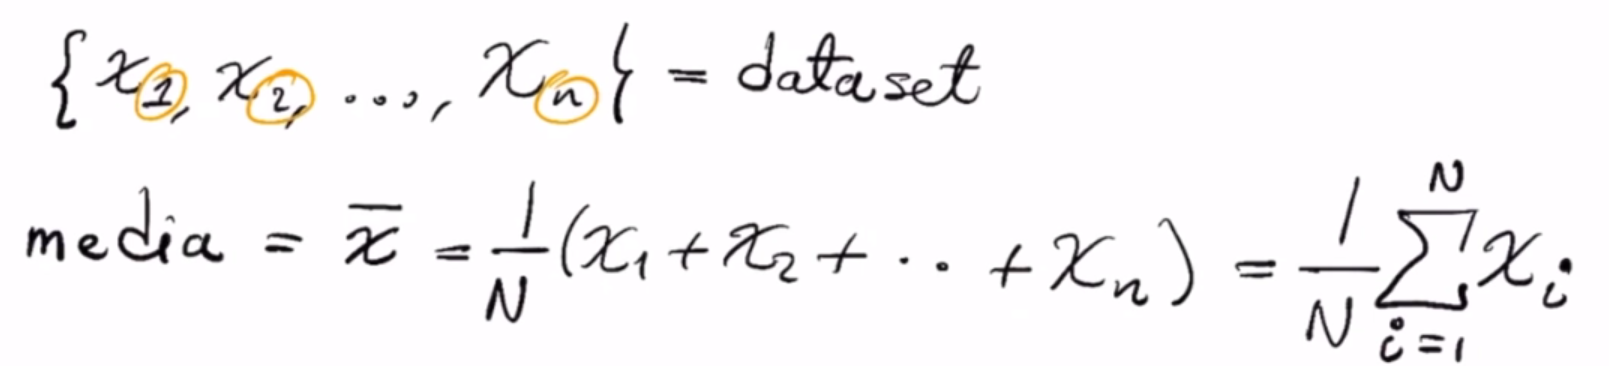 {x₁, x₂, ..., xₙ} = dataset
media = x̄ = 1/N (x₁ + x₂ + ... + xₙ) = 1/N ∑ᵢ₌₁ᴺ xᵢ